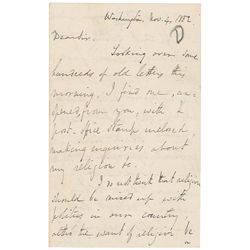 Washington, Nov. 4, 1882
D
Dear Sir.
Looking over some
hundreds of old letters this
morning, I find one, un-
opened from you, with a
post-office stamp inclosed,
making inquiries about
my religion &c.
I do not think that religion
should be mixed up with
politics in our country,
the want of religion be